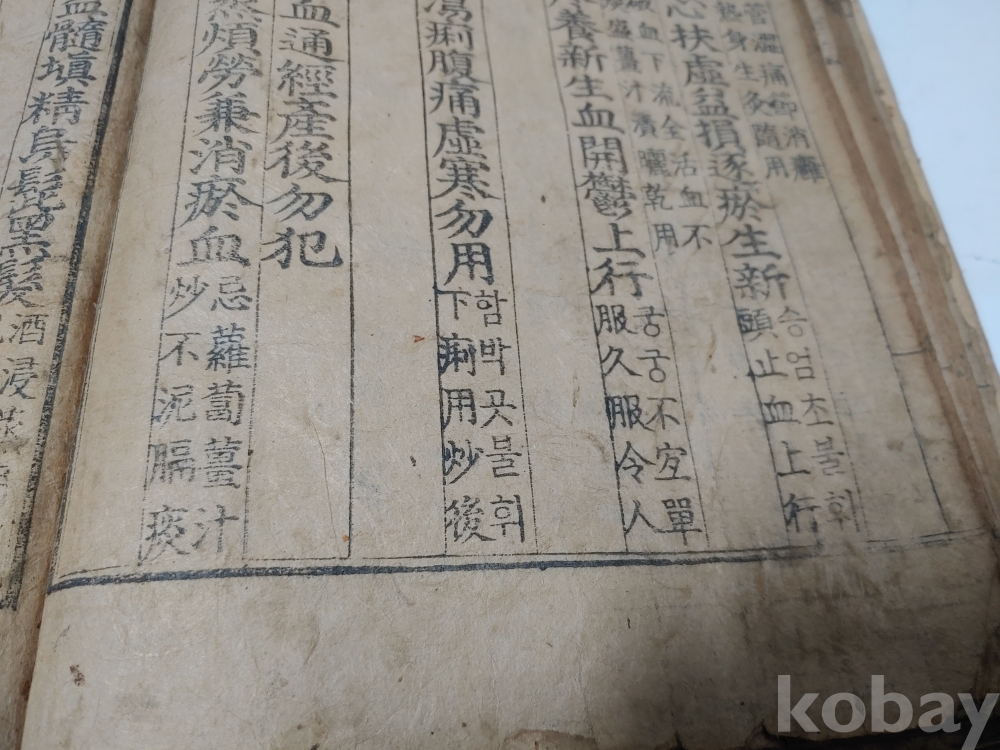 心扶虛益損逐瘀生新
승엄초불휘
頭止血上行
血下流全活血不
薑汁漬曬乾用
養新生血開鬱上行
궁궁不宜單
服久服令人
痢腹痛虛寒勿用
함박곳불휘
下痢用炒後
血通經產後勿犯
煩勞兼消瘀血
忌蘿蔔薑汁
炒不泥膈痰
血髓塡精烏髭黑髮
酒浸蒸
kobay